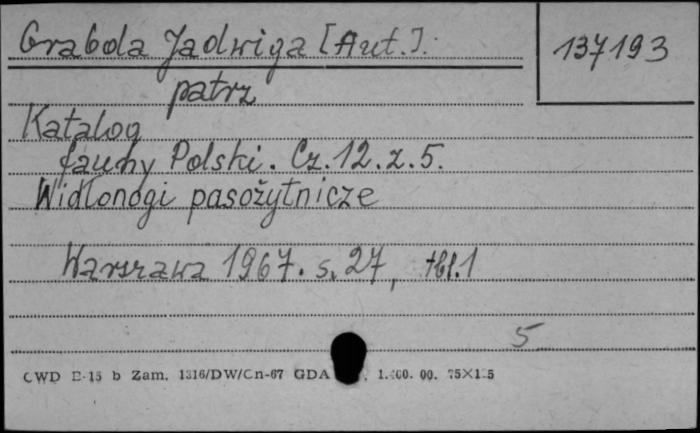 Grabda Jadwiga [Aut.].
137193
patrz
Katalog
fauny Polski. Cz. 12. z. 5.
Widłonogi pasożytnicze
Warszawa 1967. s. 27, tbl. 1
5
CWD E-15 b Zam. 1316/DW/Cn-67 GDA